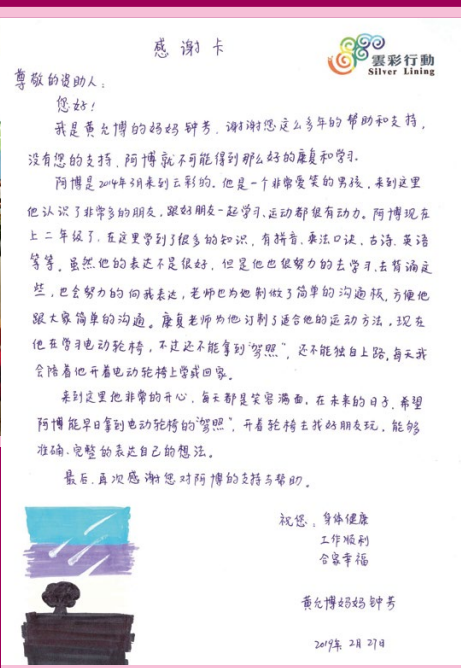 感谢卡
雲彩行動
Silver Lining
尊敬的资助人：
您好！
我是黄允博的妈妈钟芳，谢谢您这么多年的帮助和支持，
没有您的支持，阿博就不可能得到那么好的康复和学习。
阿博是2014年3月来到云彩的。他是一个非常爱笑的男孩，来到这里
他认识了非常多的朋友，跟好朋友一起学习、运动都很有动力。阿博现在
上二年级了，在这里学到了很多的知识，有拼音、乘法口诀、古诗、英语
等等，虽然他的表达不是很好，但是他也很努力的去学习、去背诵这
些，也会努力的向我表达，老师也为他制做了简单的沟通板，方便他
跟大家简单的沟通。康复老师为他订制了适合他的运动方法，现在
他在学习电动轮椅，不过还不能拿到“驾照”，还不能独自上路，每天我
会陪着他开着电动轮椅上学或回家。
来到这里他非常的开心，每天都是笑容满面，在未来的日子，希望
阿博能早日拿到电动轮椅的“驾照”，开着轮椅去找好朋友玩，能够
准确、完整的表达自己的想法。
最后，再次感谢您对阿博的支持与帮助。
祝您：身体健康
工作顺利
合家幸福
黄允博妈妈钟芳
2019年2月27日